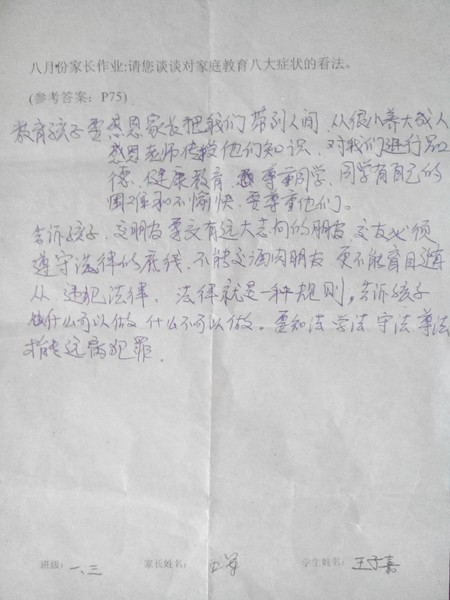 八月份家长作业:请您谈谈对家庭教育八大症状的看法。
(参考答案：P75)
教育孩子要感恩家长把我们带到人间、从很小养大成人
感恩老师传授他们知识、对我们进行品
德、健康教育 尊重同学、同学有自己的
困难和不愉快、要尊重他们。
告诉孩子、交朋友要交有远大志向的朋友、交友必须
遵守法律的底线、不能交酒肉朋友 更不能盲目
从、违犯法律、法律就是一种规则,告诉孩子
什么可以做 什么不可以做。要知法 学法 守法 尊法
犯罪.
班级: 一、三 家长姓名: 学生姓名: 王子嘉